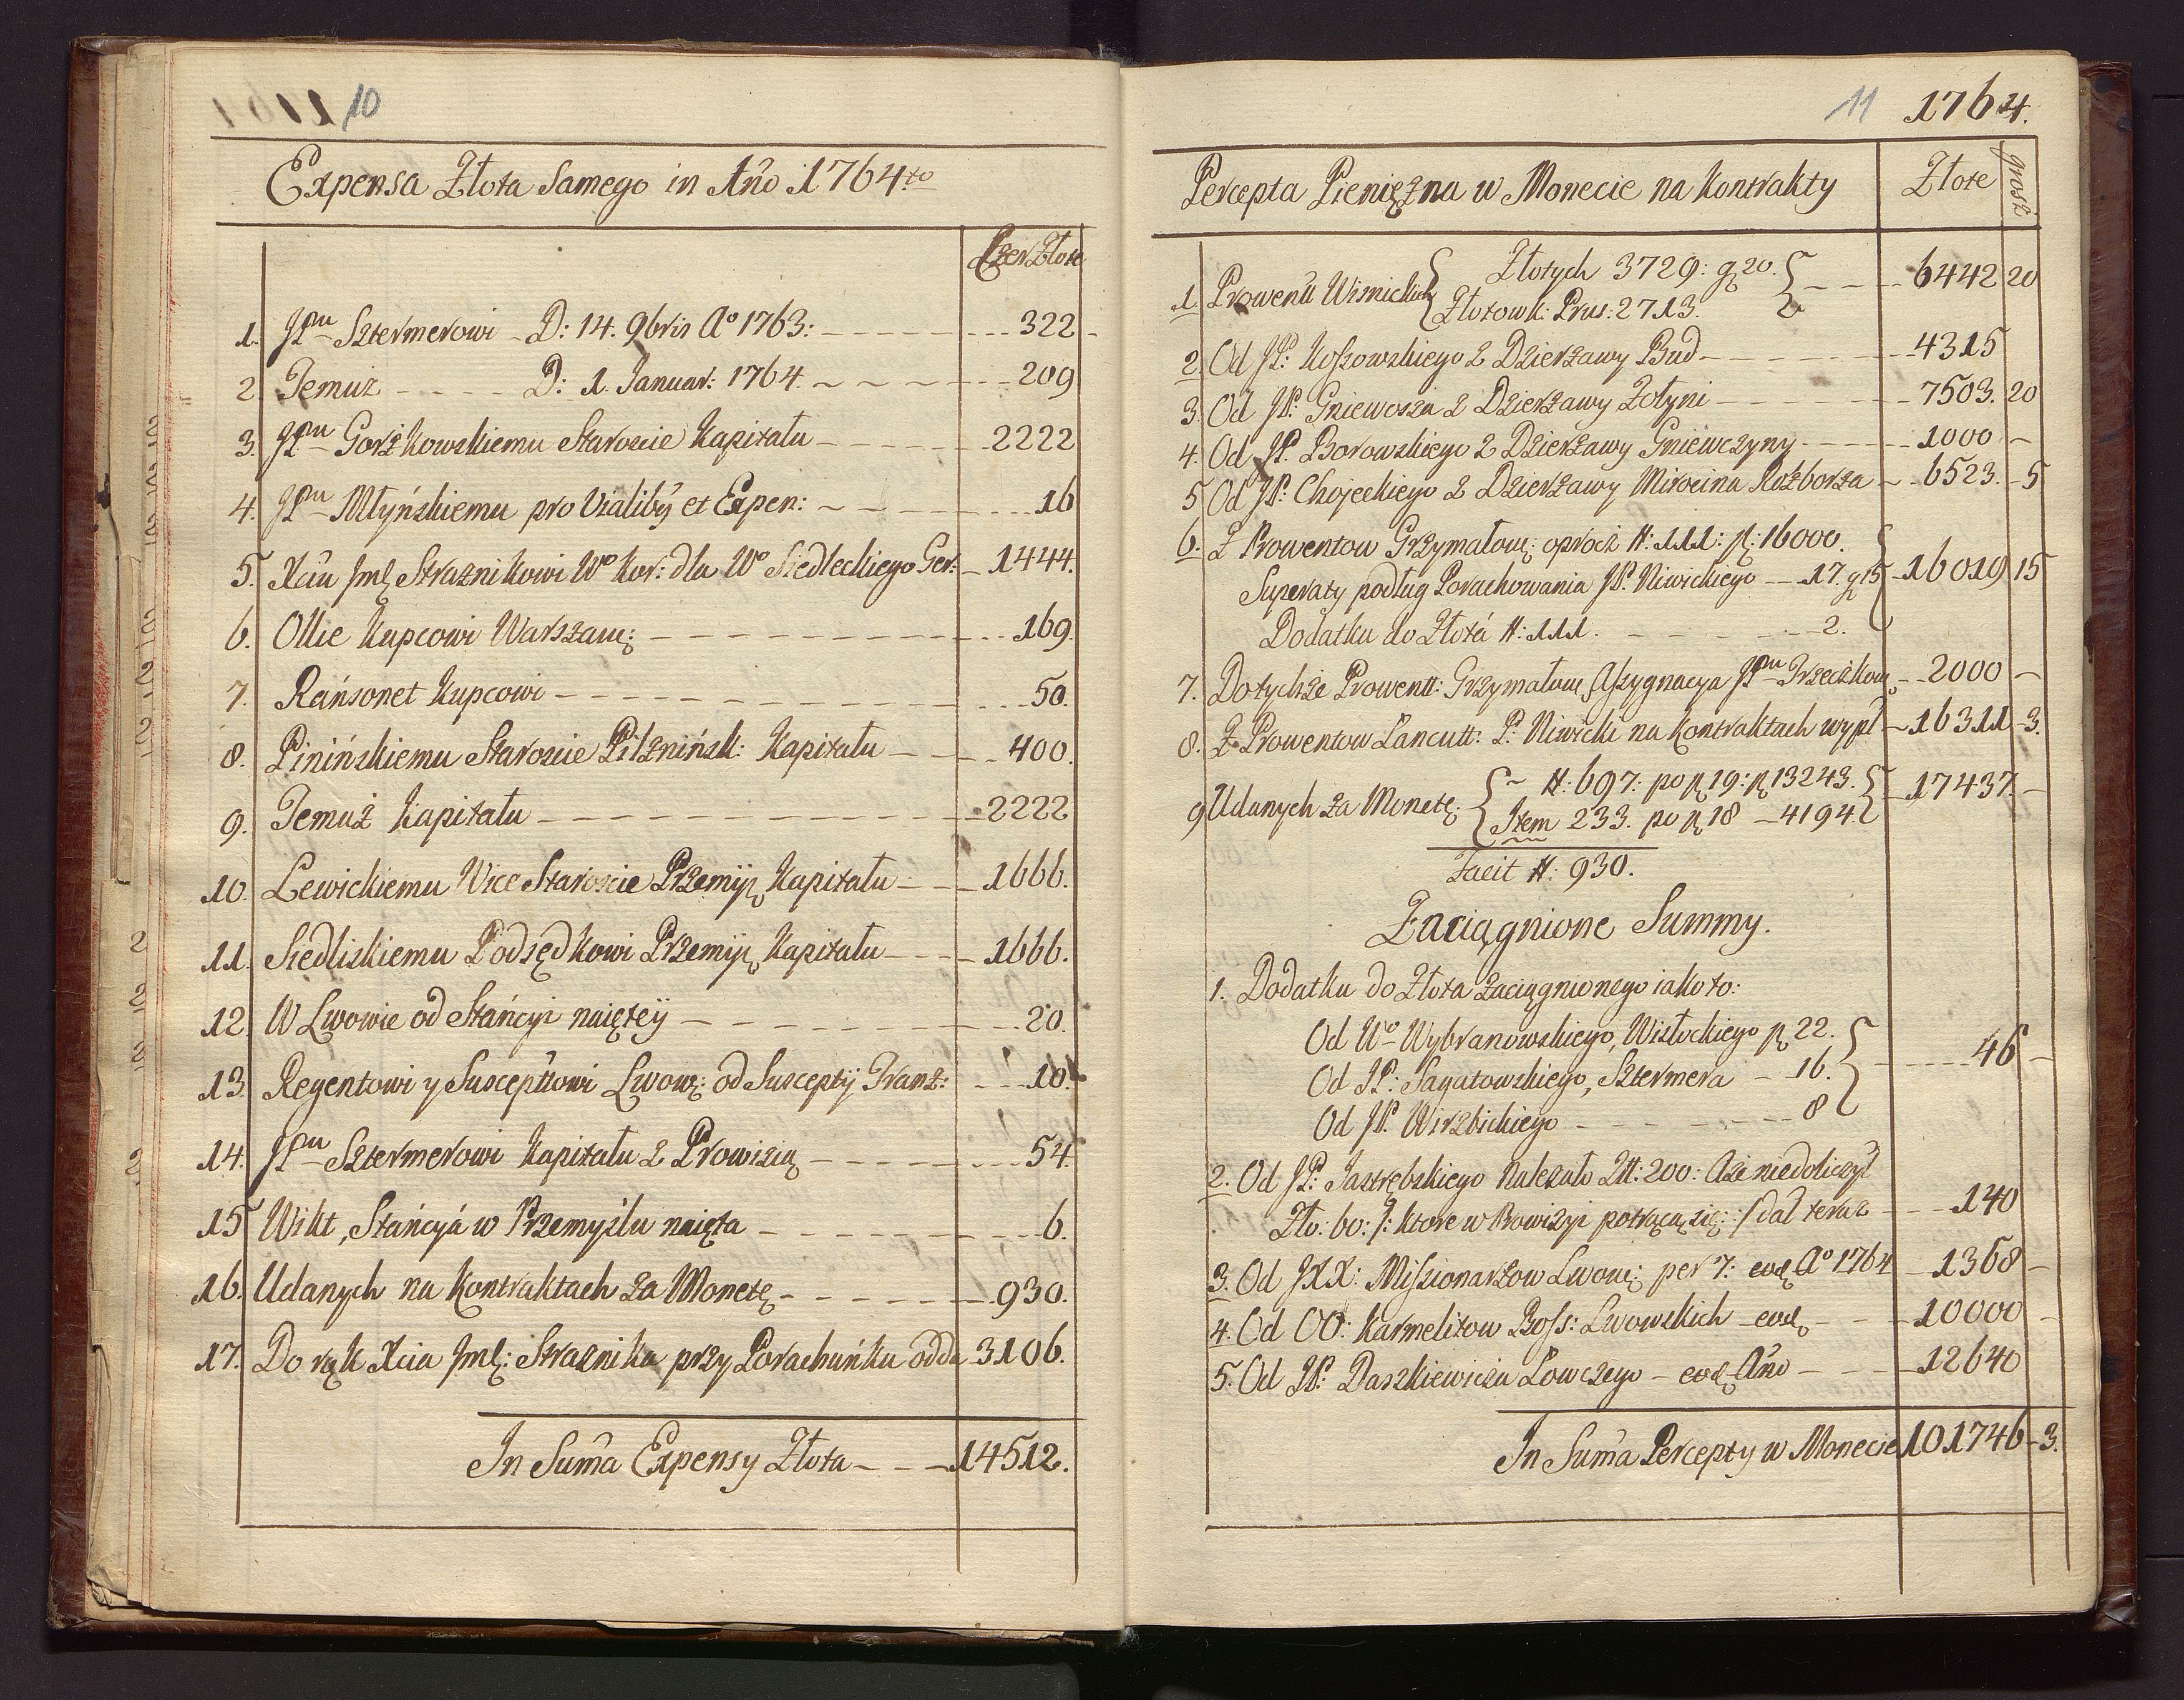 10
Expensa Złota Samego in Año 1764.to
Czer Złote
1. JPnu Sztermerowi - D: 14. 9bris A° 1763: 322
2 Temuż D: 1. Januar: 1764. 209
3. JPnu Gorżkowskiemu Staroscie Kapitału 2222
4. JPnu Młyńskiemu pro Vialibus et Expen: 16
5. Xciu Jmć Straznikowi Wo Kor: dla Wo Siedleckiego Ger: 1444.
6. Ollie Kupcowi Warszaw: 169.
7. Rańsonet Kupcowi 50.
8. Pinińskiemu Staroscie Pilznińsk: Kapitału 400.
9. Temuż Kapitału 2222
10. Lewickiemu Vice Staroscie Przemÿs Kapitału 1666.
11. Siedliskiemu Podsędkowi Przemÿs Kapitału 1666.
12. W Lwowie od Stańcyi naiętey 20.
13. Regentowi y Susceptłowi Lwow: od Susceptÿ Tranz: 10.
14. JPnu Sztermerowi Kapitału z Prowizią 54.
15 Wikt, Stańcyá w Przemyślu naięta 6.
16. Udanych na Kontraktach za Monetę 930.
17. Do rąk Xcia Jmć: Straznika przy Porachuńku odda 3106.
In Suma Expensy Złota 14512.
11 1764.
Percepta Pienięzna w Monecie na Kontrakty Złote grosz
1. Prowentu Wisnickich Złotych 3729: g 20. 6442 20
Złotowk: Prus: 2713.
2. Od JP: Kossowskiego z Dzierżawy Bud 4315
3. Od JP: Gniewosza z Dzierżawy Żołyni 7503. 20
4. Od JP. Borowskiego z Dzierżawy Gniewczyny 1000
5 Od JP: Chojeckiego z Dzierżawy Mirocina Rożborza 6523. 5
6. Z Prowentow Grzymałow: oprocz #: 111: fl: 16000.
Superaty podług Porachowania JP. Niwickiego 17. g 15 16019 15
Dodatku do Złotá #: 111. 2.
7. Dotychże Prowentt: Grzymałow Assygnacya JPnu Trzeczkow 2000
8. Z Prowentow Lancutt: P: Niwicki na Kontraktach wypł 16311 3.
9 Udanych za Monetę: #: 697: po fl 19: fl 13243. 17437.
Item 233. po fl 18 4194.
Facit #: 930.
Zaciągnione Summy.
1. Dodatku do Złota zaciągnionego iako to:
Od Wo Wybranowskiego, Wisłockiego fl 22.
Od JP: Sagatowskiego, Sztermera 16. 46
Od JP. Wirzbickiego 8
2. Od JP: Jastrębskiego Nalezało Ztt: 200: Aże niedoliczył
Zło: 60: /: ktore w Prowizyi potrącą się: / dał teraz 140
3. Od JXX: Missionarzow Lwow: per 7: eod A° 1764 1368
4. Od OO: Karmelitow Boss: Lwowskich eod 10000
5. Od JP: Daszkiewicza Łowczego - eod Año 12640
In Suma Percepty w Monecie 101746 3.